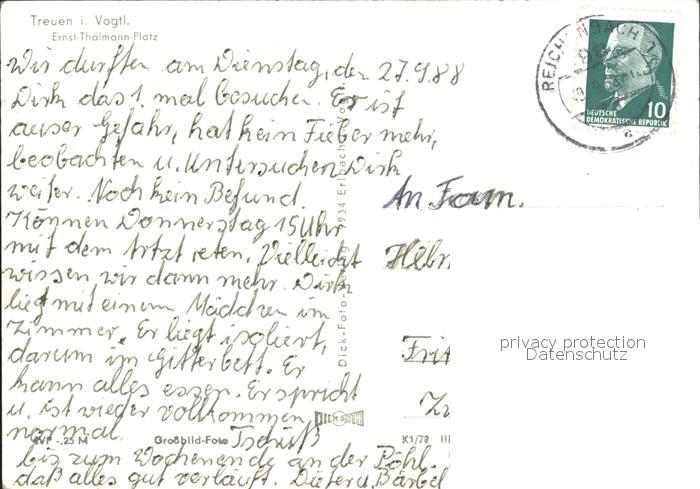 Treuen i. Vogtl.
Ernst-Thälmann-Platz
Wir durften am Dienstag, den 27.9.88
Dirk das 1. mal besuchen. Er ist
auser Gefahr, hat kein Fieber mehr,
beobachten u. Untersuchen Dirk
weiter. Noch kein Befund.
Können Donnerstag 15 Uhr
mit dem Arzt reten. Vielleicht
wissen wir dann mehr. Dirk
liegt mit einem Mädchen im
Zimmer. Er liegt isoliert,
darum im Gitterbett. Er
kann alles essen. Er spricht
u. ist wieder vollkommen
normal. Tschüß
bis zum Wochenende an der Pöhl,
daß alles gut verläuft. Dieter u. Bärbel
EVP -,25 M
Großbild-Foto
K1/72
Dick-Foto-Verlag 9934 Erlbach
REICHENBACH 1
DEUTSCHE
DEMOKRATISCHE REPUBLIK
10
An Fam.
privacy protection
Datenschutz